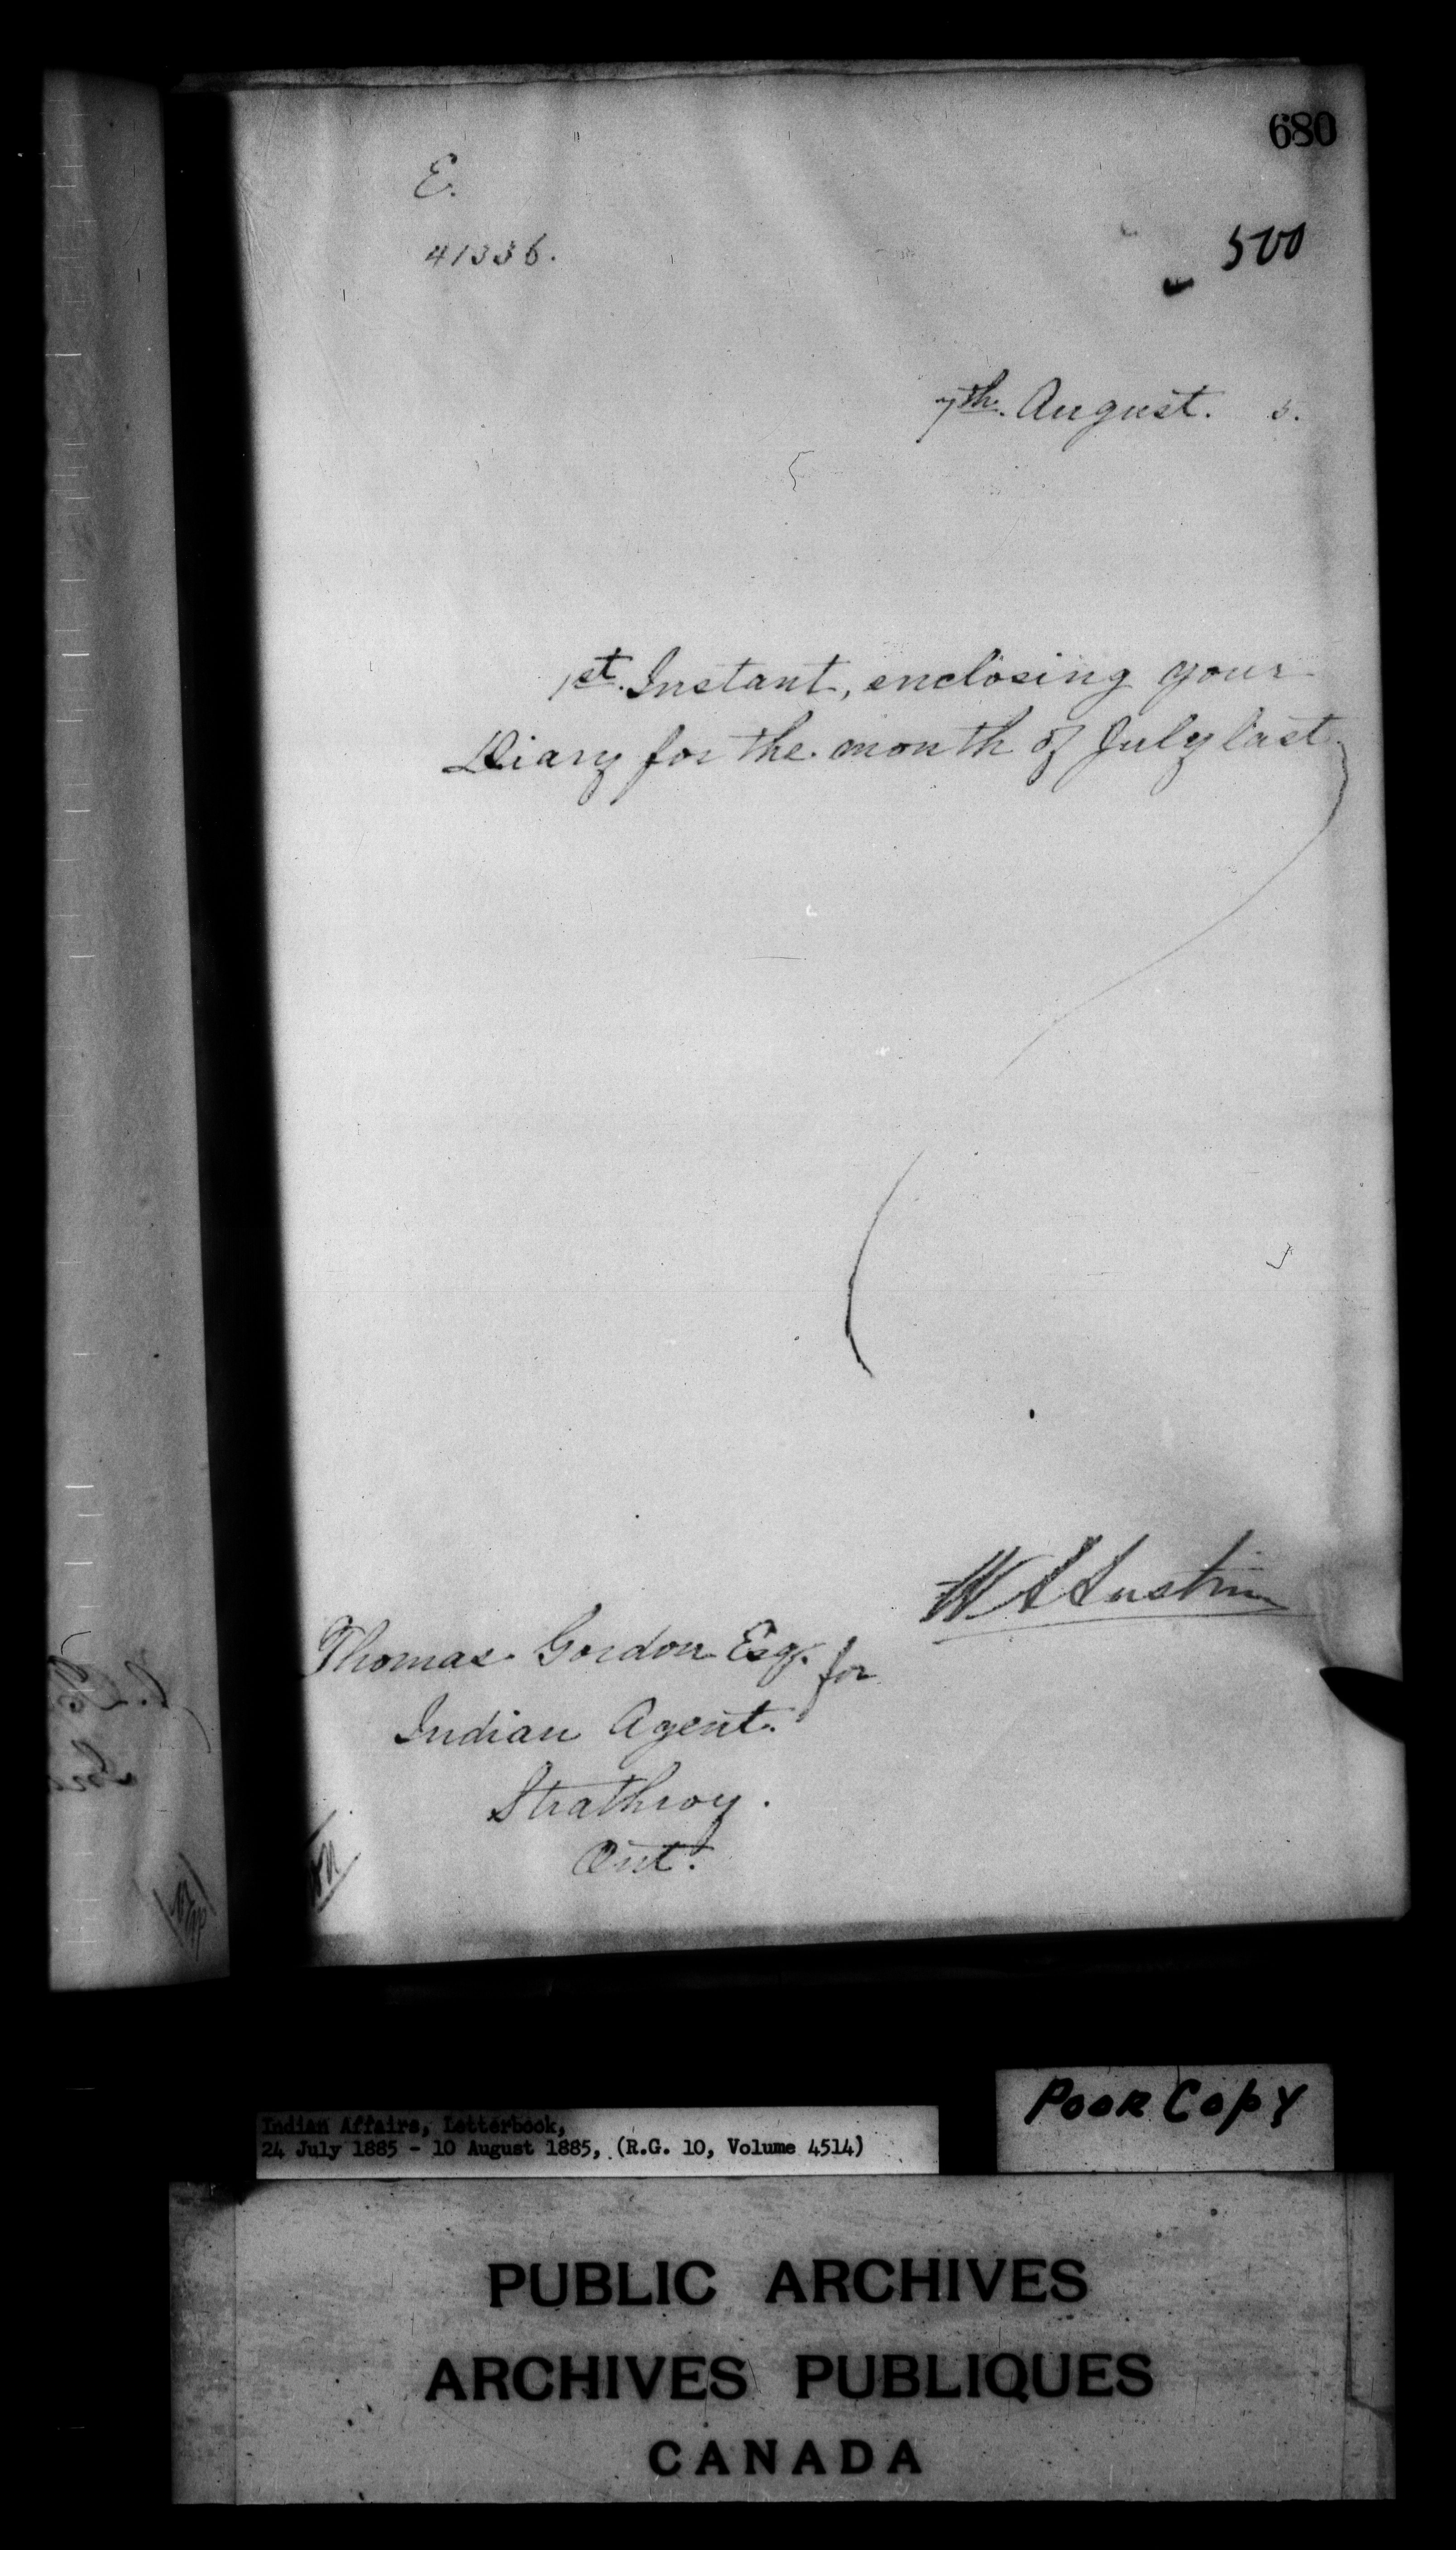 680
E.
41336.
500
7th. August. 5.
1st. Instant, enclosing your
Diary for the month of July last.
W A Austin
Thomas Gordon Esqr. for
Indian Agent.
Strathroy.
Ont.
Poor Copy
Indian Affairs, Letterbook,
24 July 1885 - 10 August 1885, (R.G. 10, Volume 4514)
PUBLIC ARCHIVES
ARCHIVES PUBLIQUES
CANADA